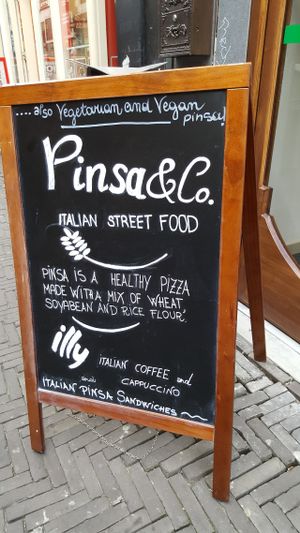 ....also Vegetarian and Vegan
pinsa!
Pinsa&Co.
ITALIAN STREET FOOD
PINSA IS A HEALTHY PIZZA
MADE WITH A MIX OF WHEAT
SOYABEAN AND RICE FLOUR.
illy
ITALIAN COFFEE and
CAPPUCCINO
and
ITALIAN PINSA SANDWICHES